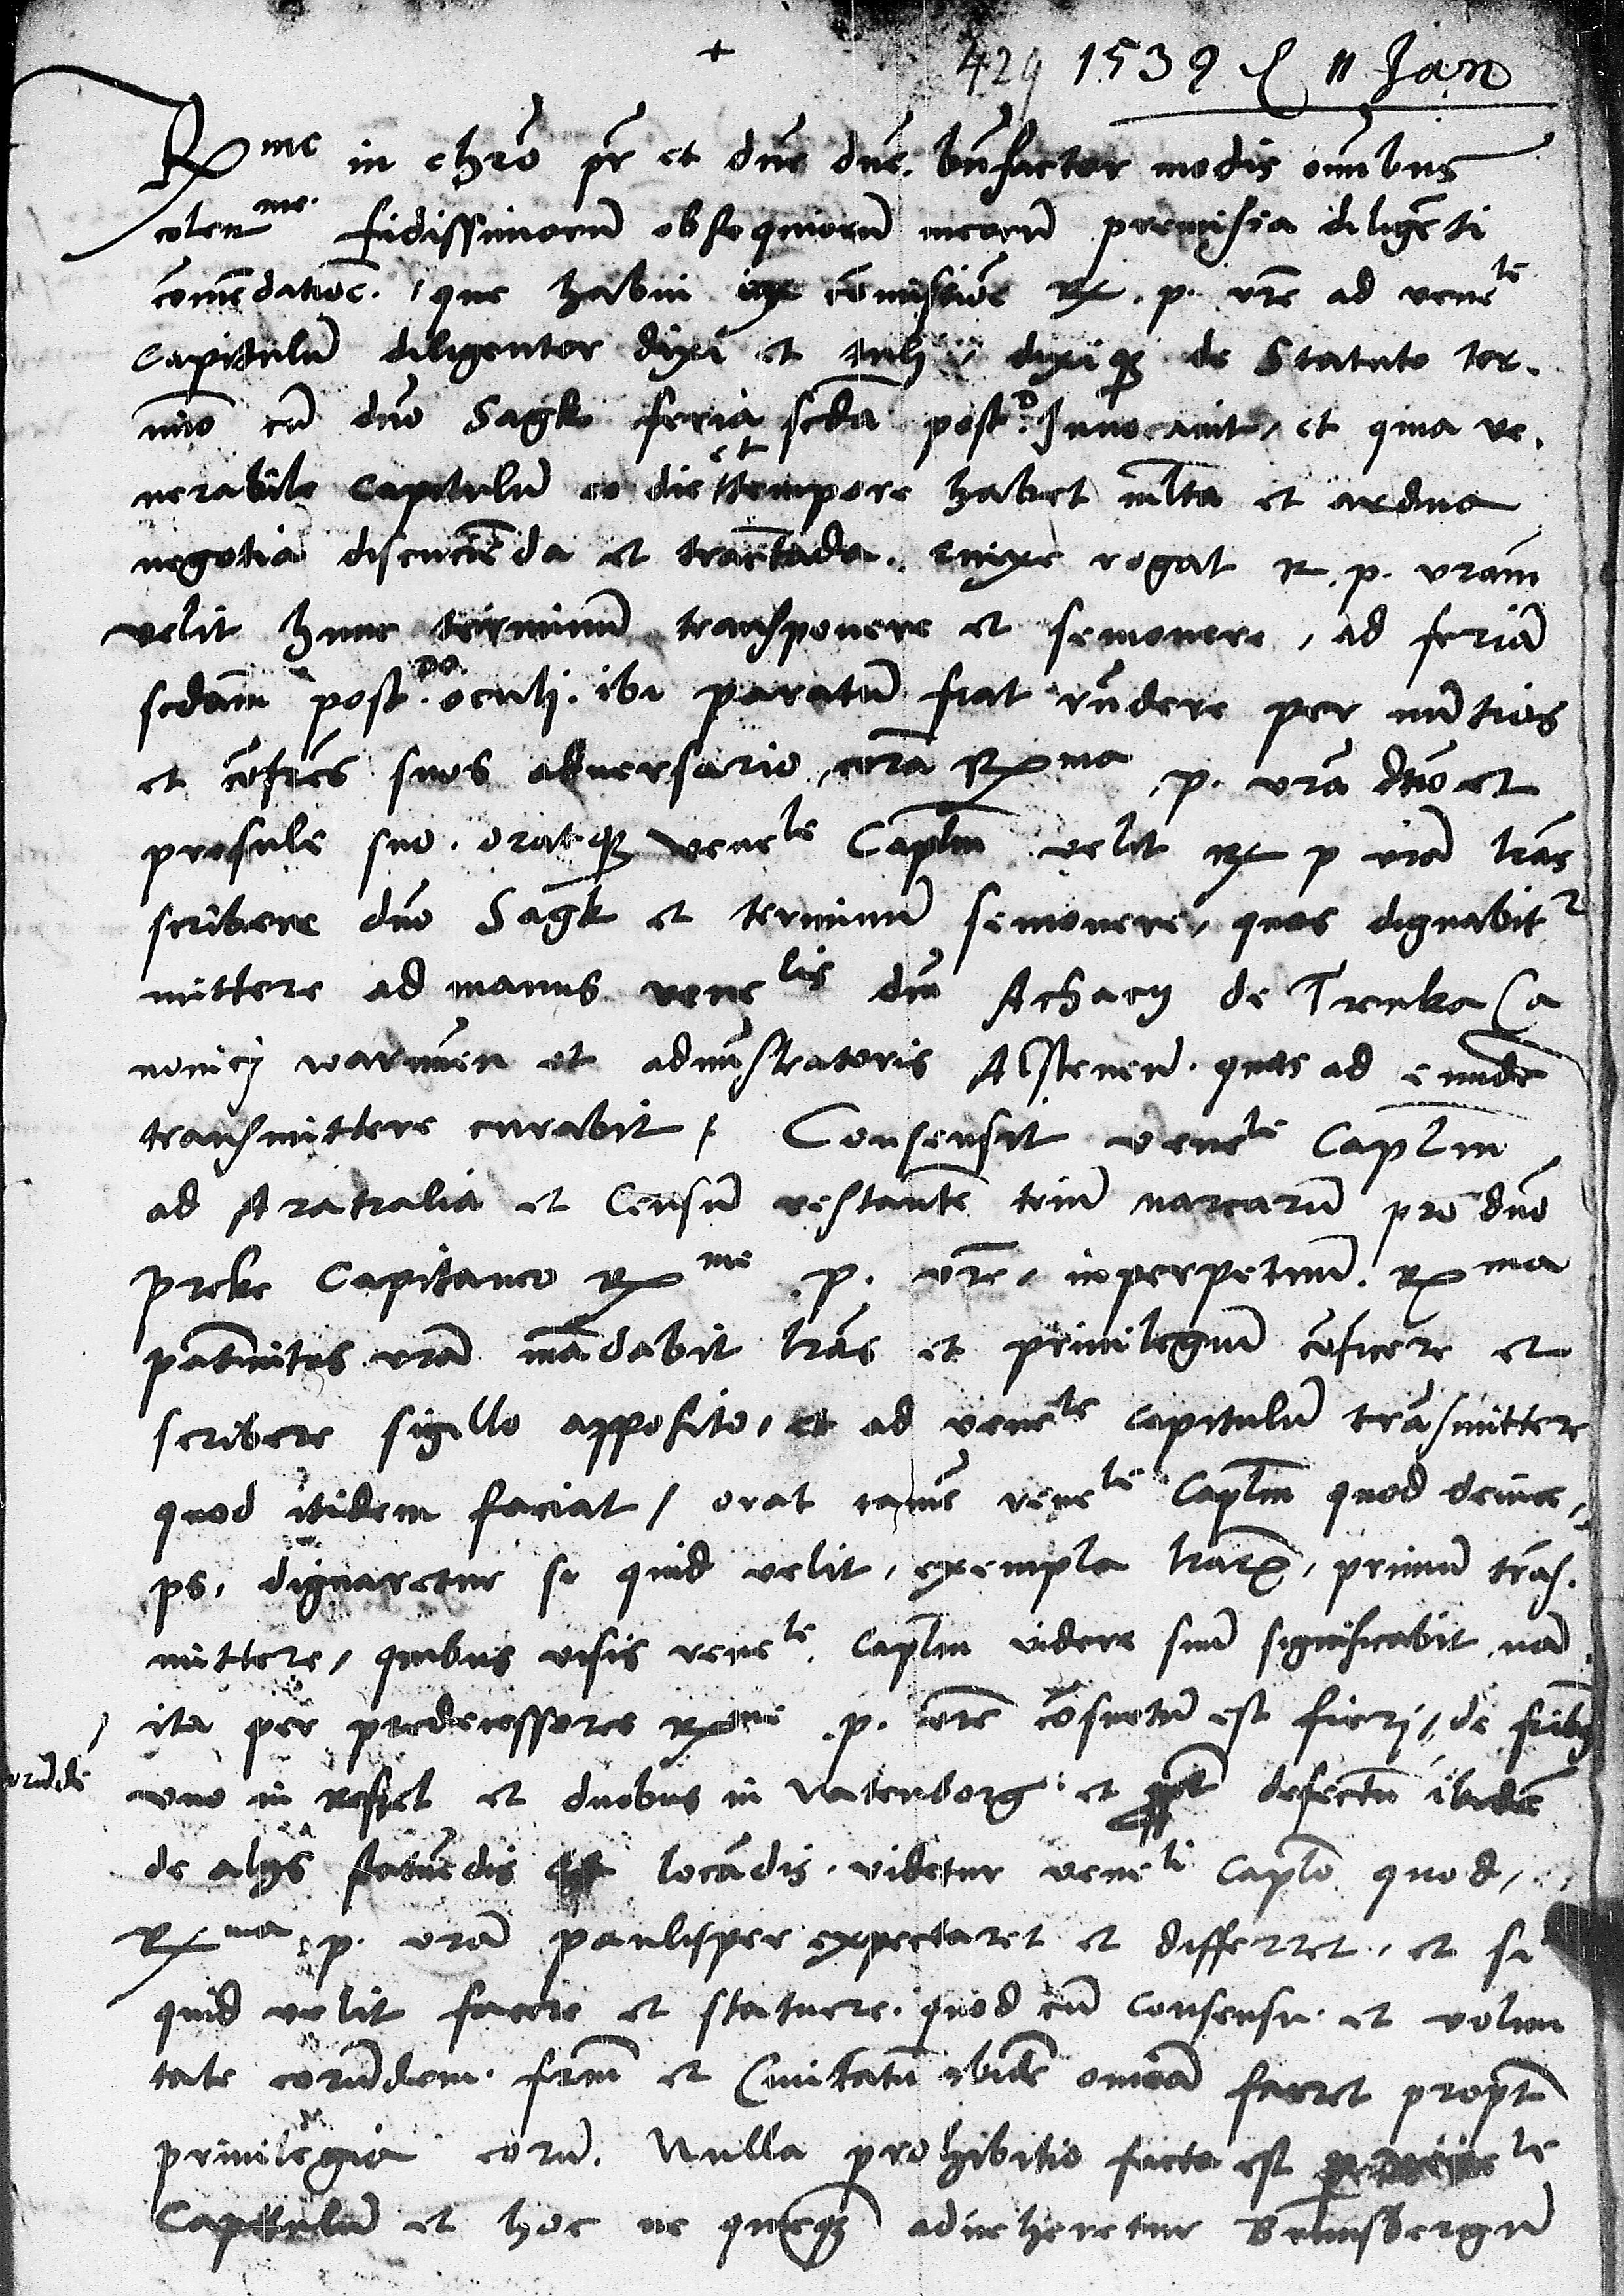 + 429 1539 11 Jan
R^me in chro pr et dne dne. bnfactor modis omibus
colen^me. fidissimoru obsequioru meoru premissa diligenti
comendatioe. que habui comissioe R. p. vre ad vene^le
Capitulu diligenter dixi et tuli, dixiq3 de Statuto ter.
mio cu dno Sagk feria scda post D. Invocavit, et quia ve.
nerabile Capitulu eo die et tempore habet mlta et ardua
negotia discuciẽda et tractãda. enixe rogat R. p. vram
velit hunc terminu transponere et semovere, ad feria
scdam post Do. oculi. ibi paratu fiat rñdere per nutios
et cõfrẽs suos adversario, corã R^ma p. vra dño et
presule suo. oratq3 vene^le Caplm velit R p vra lras
scribere dno Sagk et terminu semovere, quas dignabit^r
mittere ad manus vene^lis dni Achacij de Trenka Ca
nonicj warmien et administratoris Allstenen. quas ad eunde
transmittere curabit. Consensit vene^le Caplm
ad Aratralia et Censu restante triu marcaru pro dno
Preke Capitaneo R^me p. vre, inperpetuum. R^ma
patnitas vra madabit lras et privilegiu cõficere et
scribere sigillo apposito, et ad vene^le Capitulu trãsmittere
quod itidem faciat, orat tame vene^le Caplm quod deince,
ps, dignaretur si quid velit, exempla lrar, primu trãs.
mittere, quibus visis vene^le. Caplm videre suu significabit nã
ita per predecessores R^me p. vre cõsuetu est fierj, de
uno in Ressel et duobus in Wartenborg et ppt defectu ibide
de alijs statuẽdis locãdis. videtur vene^li Caplo quod,
R^ma p. vra paulisper expectaret et differret, et si
quid velit facere et statuere. quod cu consensu et volun
tate eorundem. frm et Civitatu ibide omia faceret propt
privilegia eoru. Nulla prohibitio facta est per vene^le
Capitulu et hoc ne adveheretur Brunsbergu